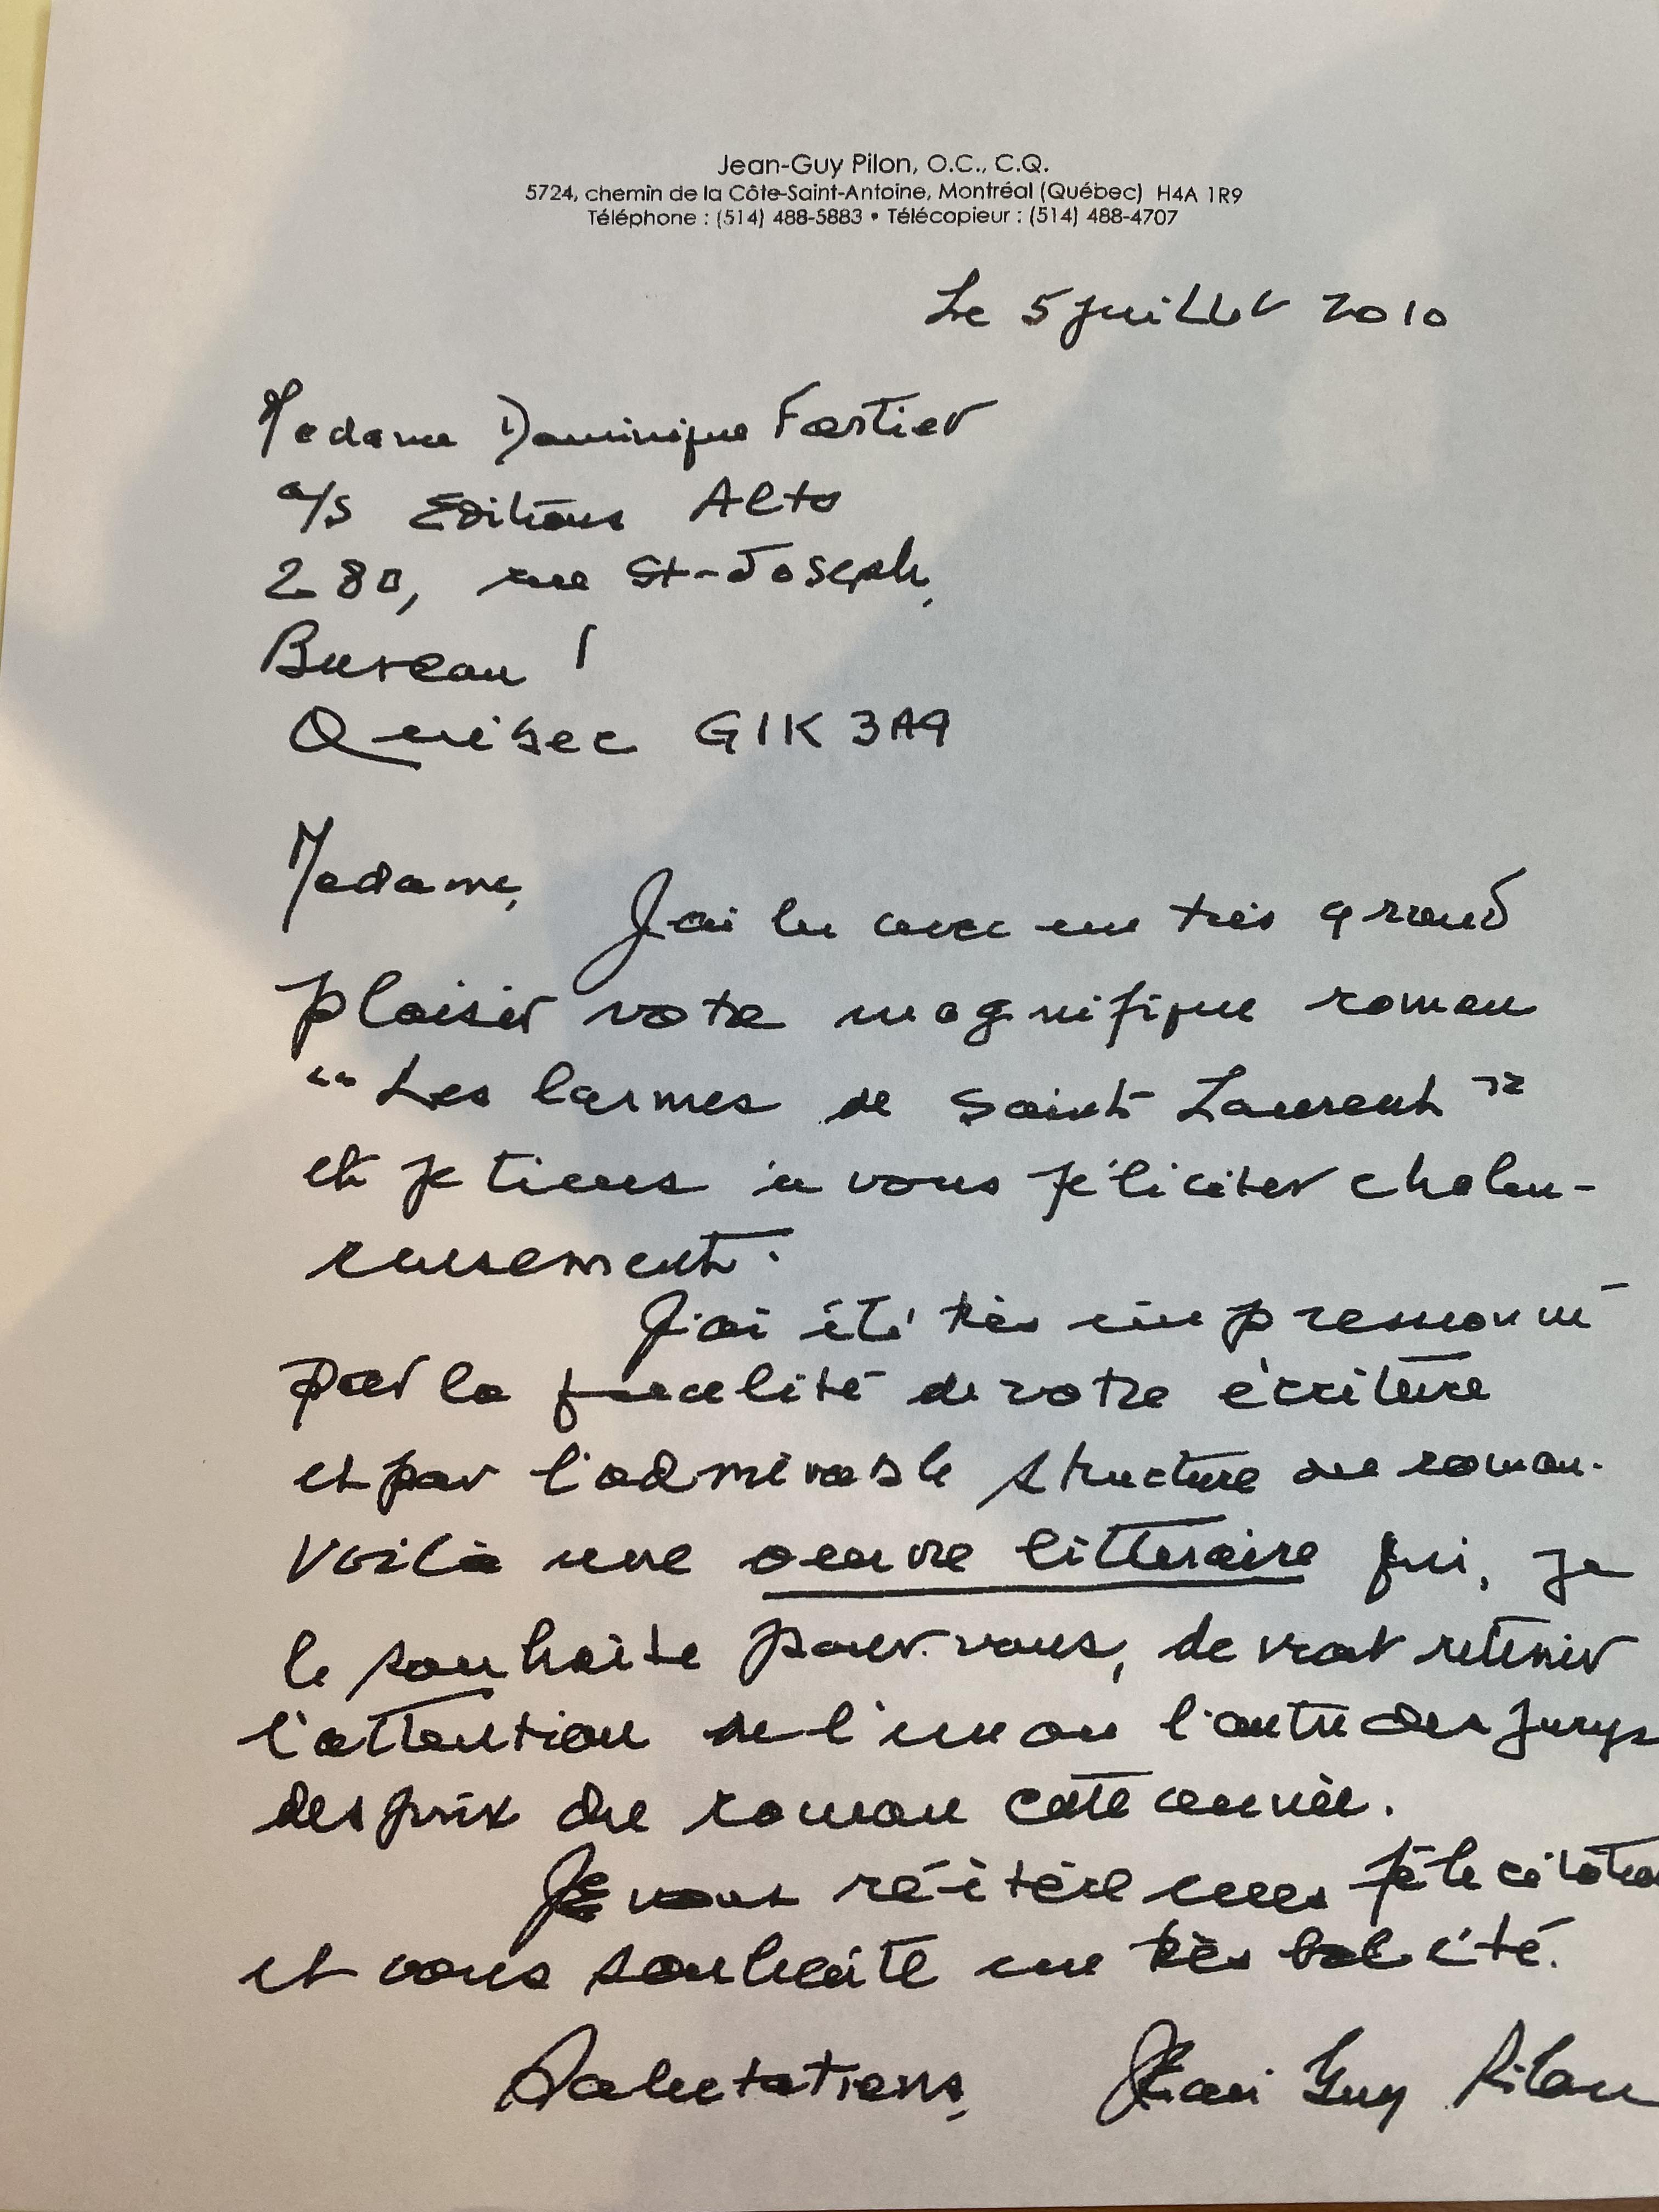 Jean-Guy Pilon, O.C., C.Q.
5724, chemin de la Côte-Saint-Antoine, Montréal (Québec) H4A 1R9
Téléphone : (514) 488-5883 • Télécopieur : (514) 488-4707
Le 5 juillet 2010
Madame Dominique Fortier
a/s Editions Alto
280, rue St-Joseph,
Bureau 1
Québec G1K 3A9
Madame,
J'ai lu avec un très grand
plaisir votre magnifique roman
"Les larmes de Saint Laurent"
et je tiens à vous féliciter chaleu-
reusement.
J'ai été très impressionné
par la qualité de votre écriture
et par l'admirable structure du roman.
Voilà une oeuvre littéraire qui, je
le souhaite pour vous, devrait retenir
l'attention de l'un ou l'autre des jurys
des prix du roman cette année.
Je vous réitère mes
et vous souhaite un très bel été.
Salutations,
Jean Guy Pilon